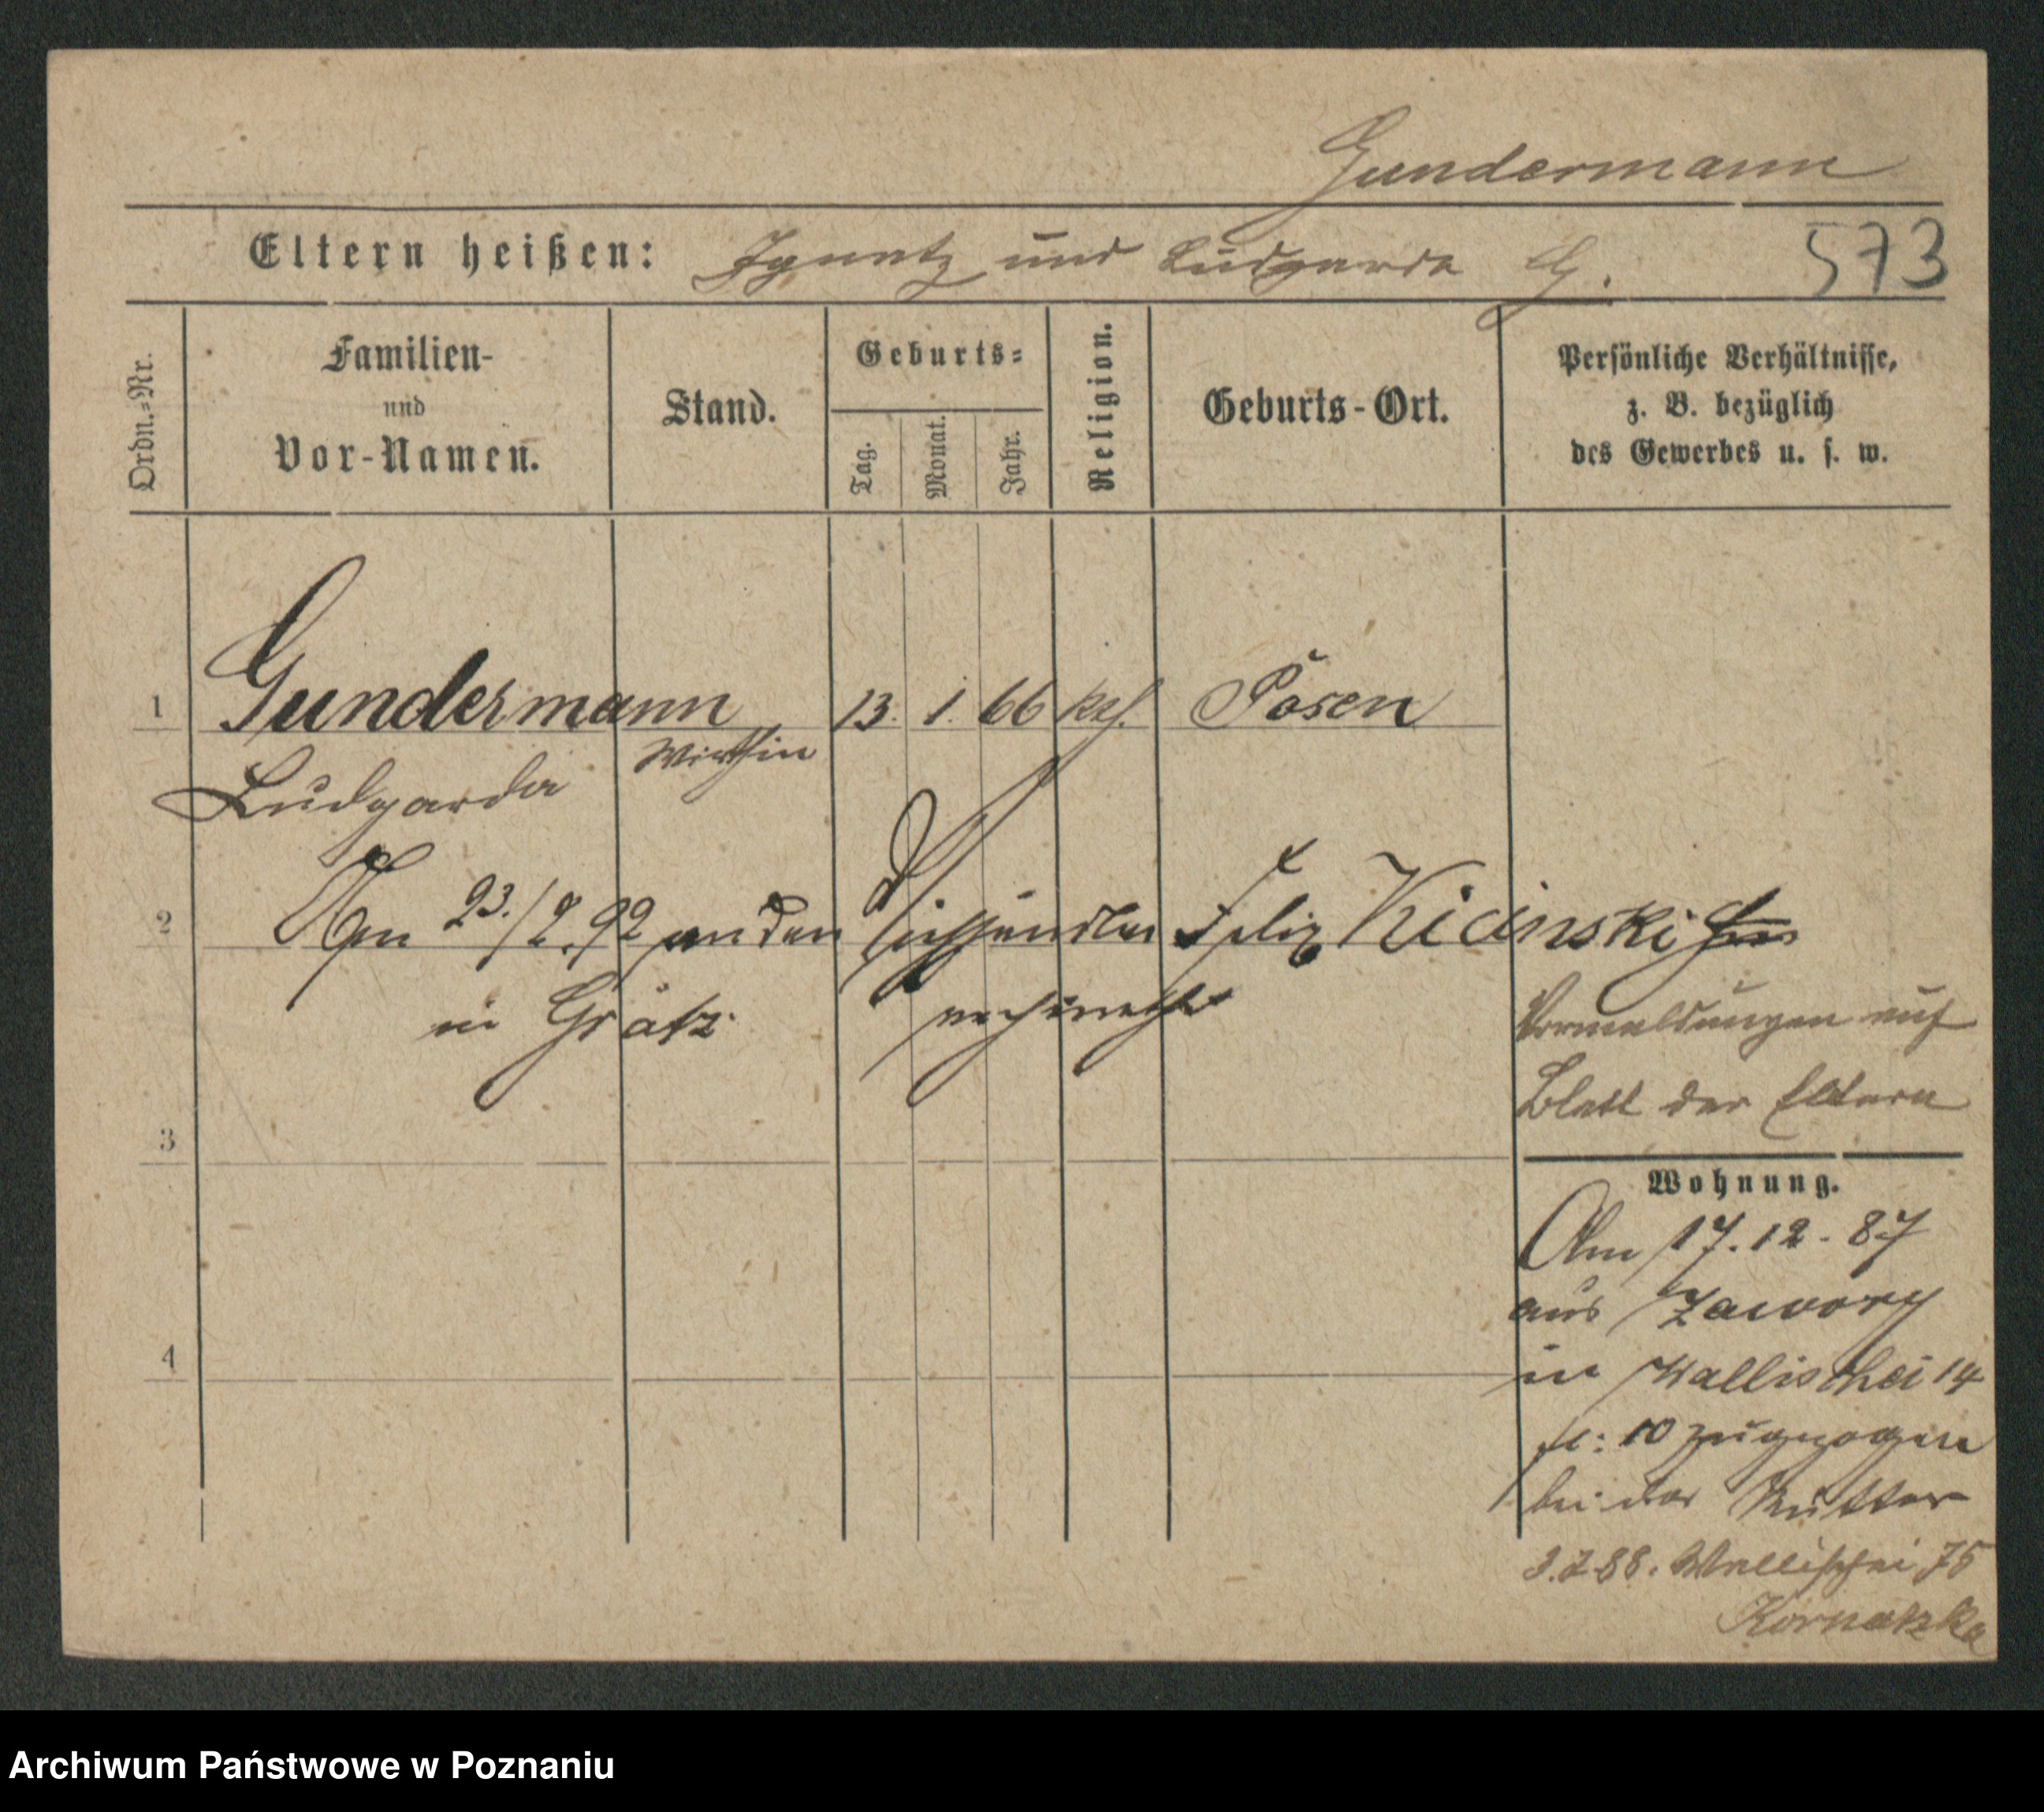 Gundermann
Eltern heißen: Ignatz und Ludgarda G. 573
Ordn.=Nr.
Familien- und Vor-Namen.
Stand.
Geburts=
Tag. Monat. Jahr.
Religion.
Geburts-Ort.
Persönliche Verhältnisse,
z. B. bezüglich
des Gewerbes u. s. w.
1 Gundermann 13. 1. 66 kath. Posen
Ludgarda Wirthin
2 Am 23./2. 92 an den Felix Kicinski
in Grätz verheirathet
Vormeldungen auf
Blatt der Eltern
3
Wohnung.
Am 17. 12. 87
aus Zawory
4
in Wallischei 14
10 zugezogen
bei der Mutter
3.7.88. Wallischei 75
Kornatzka
Archiwum Państwowe w Poznaniu